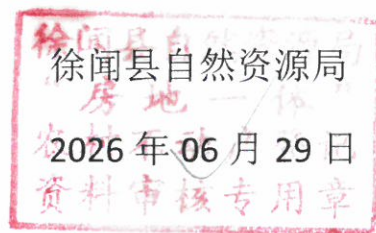 徐闻县自然资源局
2026 年 06 月 29 日
徐闻县自然资源局
“房地一体”
资料审核专用章